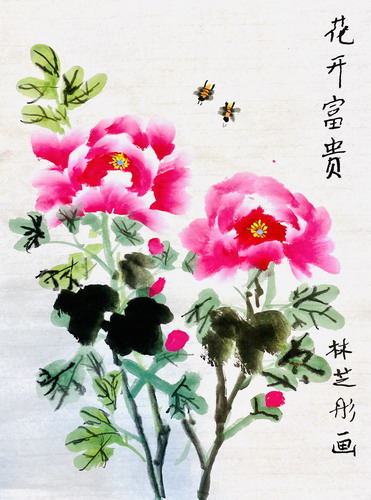 花开富贵
林芝彤画